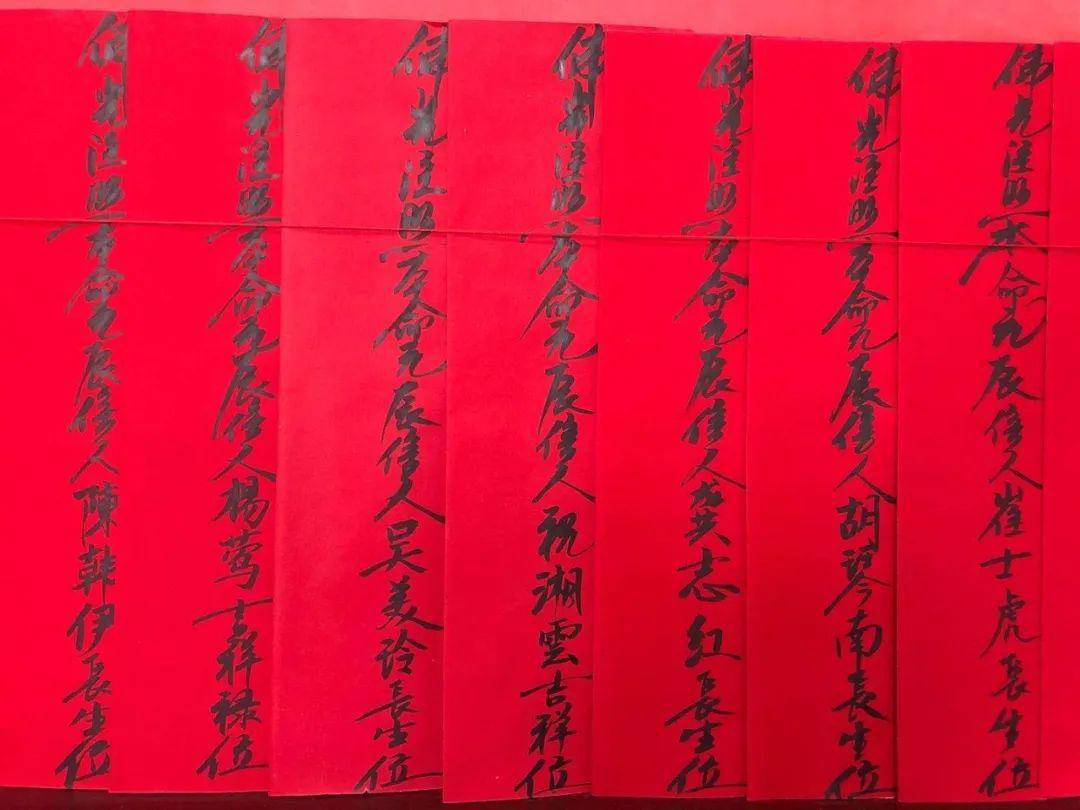 佛光注照本命元辰信人崔士虎長生位
佛光注照本命元辰信人胡琴南長生位
佛光注照本命元辰信人龚志红長生位
佛光注照本命元辰信人祝湖雲吉祥位
佛光注照本命元辰信人吴美玲長生位
佛光注照本命元辰信人楊莺吉祥禄位
佛光注照本命元辰信人陳韩伊長生位